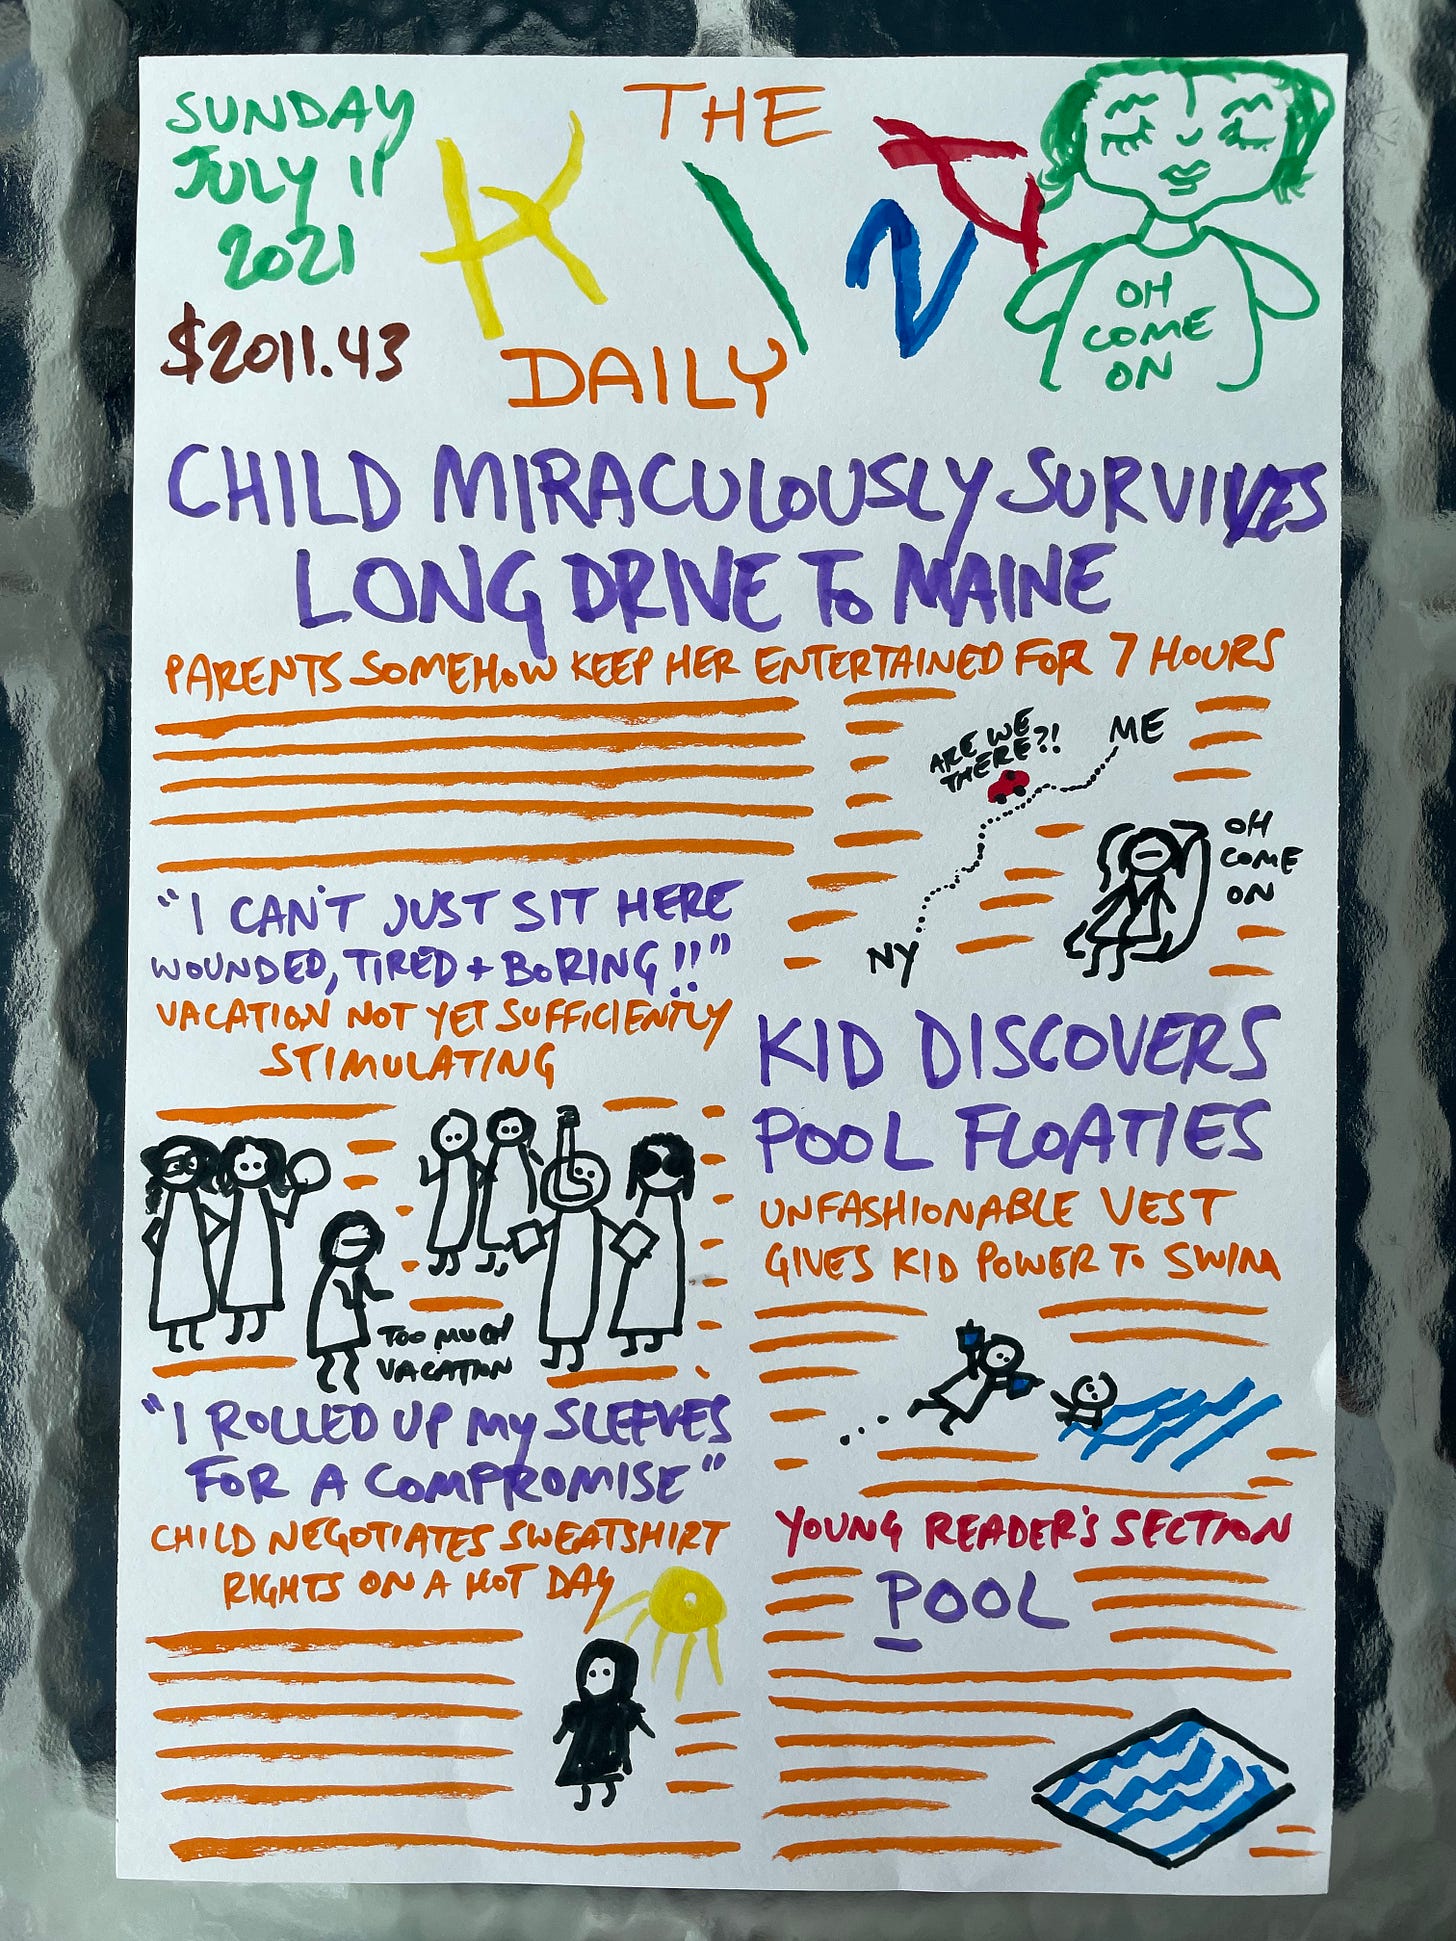 SUNDAY
JULY 11
2021
$2011.43
THE
DAILY
OH
COME
ON
CHILD MIRACULOUSLY SURVIVES
LONG DRIVE TO MAINE
PARENTS SOMEHOW KEEP HER ENTERTAINED FOR 7 HOURS
ARE WE
THERE?!
ME
NY
OH
COME
ON
"I CAN'T JUST SIT HERE
WOUNDED, TIRED + BORING!!"
VACATION NOT YET SUFFICIENTLY
STIMULATING
TOO MUCH
VACATION
"I ROLLED UP MY SLEEVES
FOR A COMPROMISE"
CHILD NEGOTIATES SWEATSHIRT
RIGHTS ON A HOT DAY
KID DISCOVERS
POOL FLOATIES
UNFASHIONABLE VEST
GIVES KID POWER TO SWIM
YOUNG READER'S SECTION
POOL